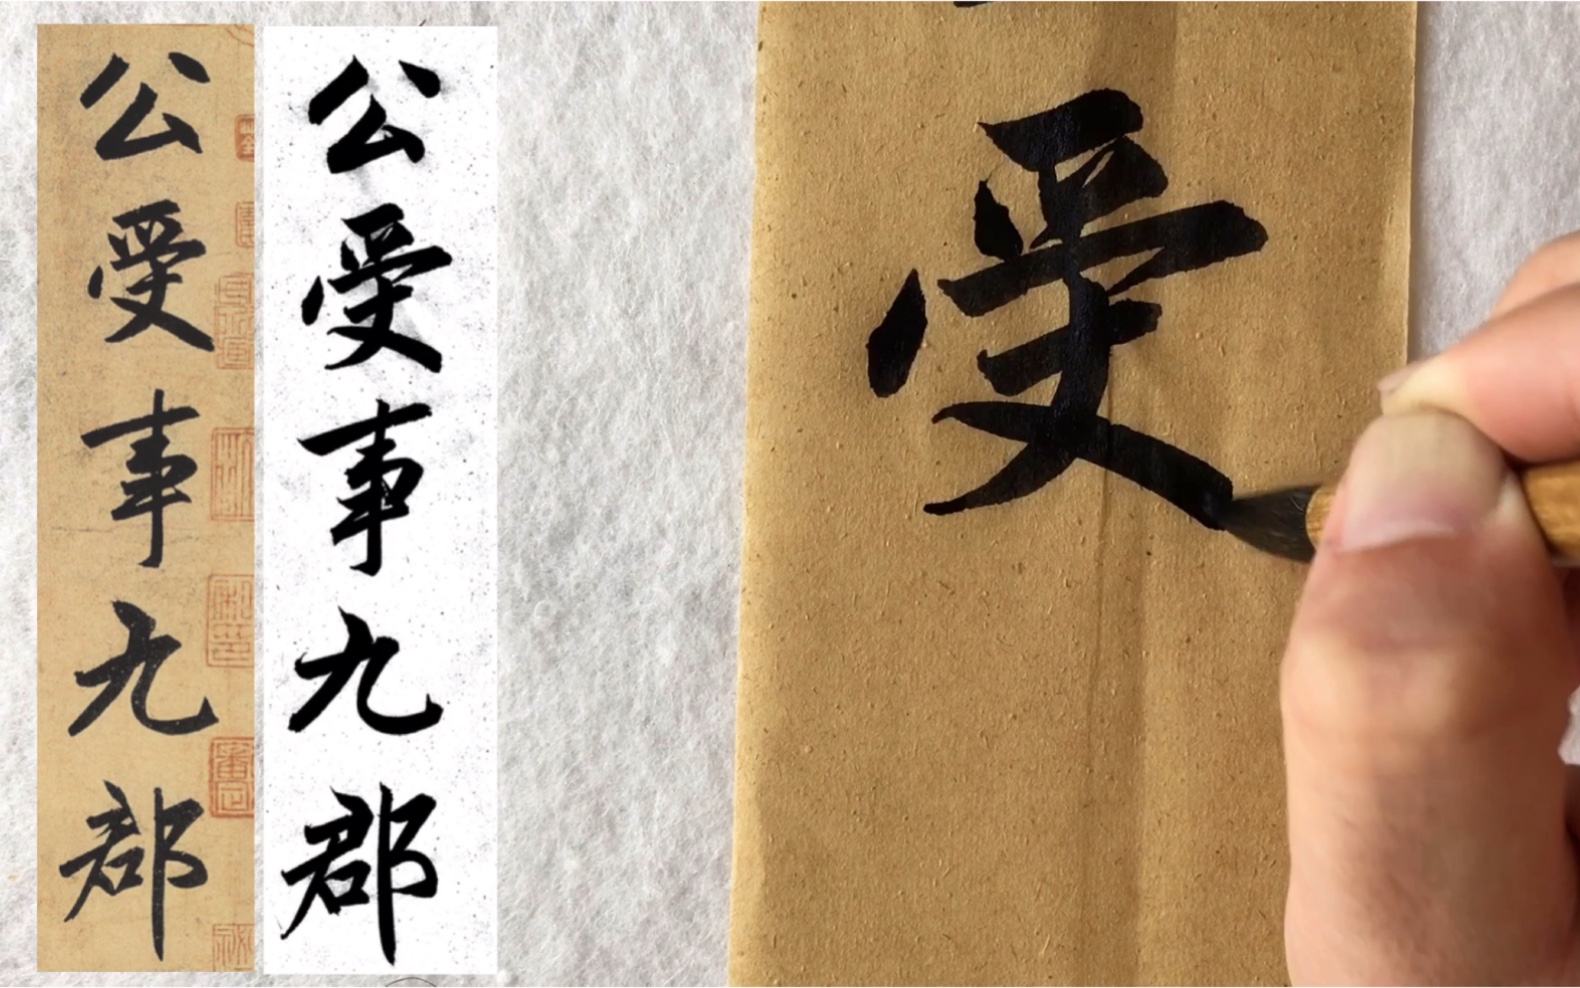 公受事九郡
公受事九郡
受